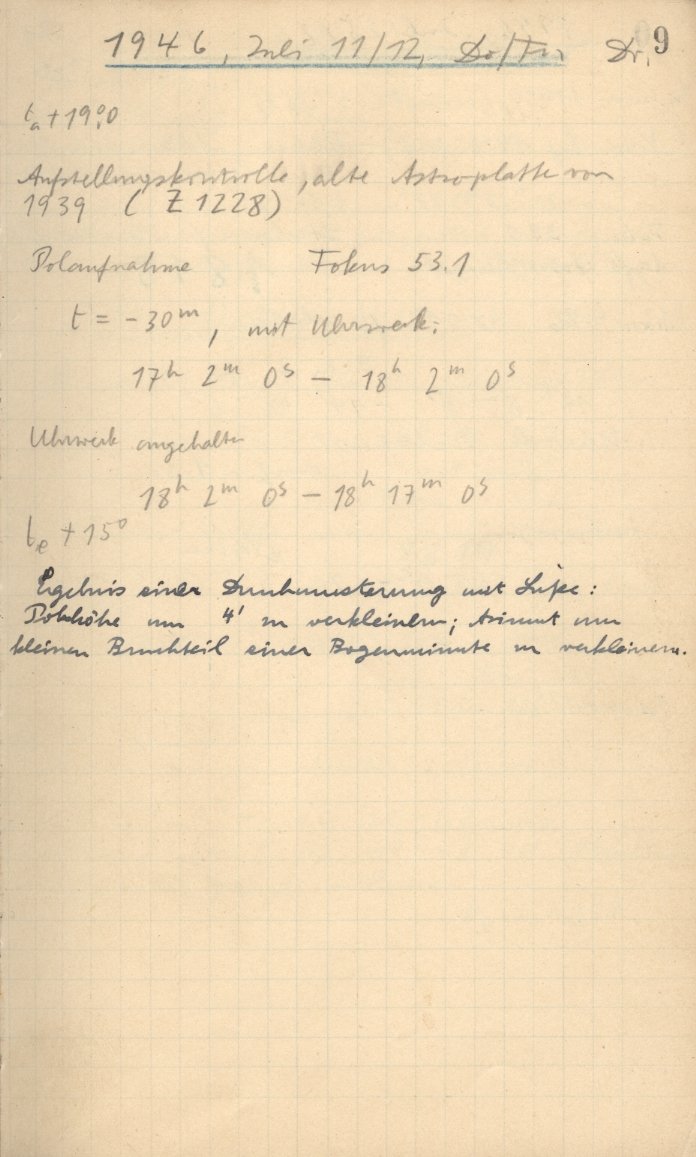 1946, Juli 11/12, Do/Fr. Dr. 9
ta + 19°.0
Aufstellungskontrolle, alte Astroplatte von
1939 ( Z 1228)
Polaufnahme Fokus 53.1
t = -30m, mit Uhrwerk:
17h 2m 0s – 18h 2m 0s
Uhrwerk angehalten
18h 2m 0s – 18h 17m 0s
te + 15°
Ergebnis einer Durchmusterung mit Lupe:
Polhöhe um 4' zu verkleinern; Azimut um
kleinen Bruchteil einer Bogenminute zu verkleinern.